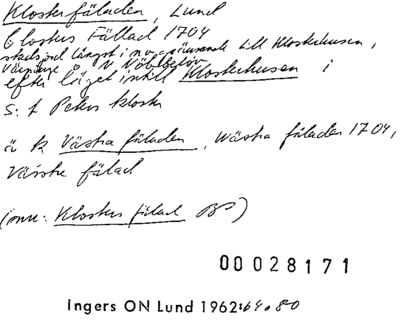 Klosterfäladen, Lund
Closters Fällad 1704
stadsdel längst i n.o. gränsande till Klosterhusen,
efter läget intill Klosterhusen i
S:t Peters kloster
ä k Västra fäladen, Wästra fäladen 1704,
Västre fälad
(inne: Klosters fälad OBS)
00028171
Ingers ON Lund 1962:64.80